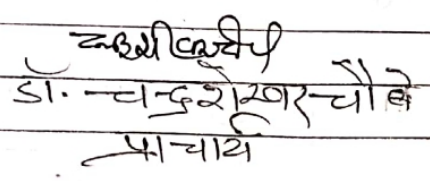 डॉ. चन्द्रशेखर चौबे
प्राचार्य